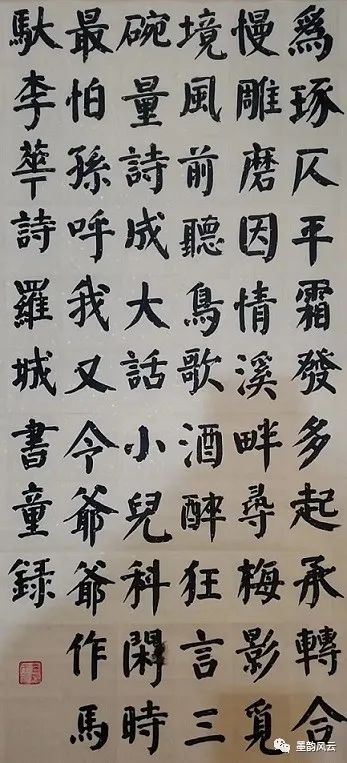 爲琢仄平霜發多起承轉合
慢雕磨因情溪畔尋梅影覓
境風前聽鳥歌酒酔狂言三
碗量詩成大話小兒科閑時
最怕孫呼我又令爺爺作馬
馱李華詩羅城書童録
墨韵风云